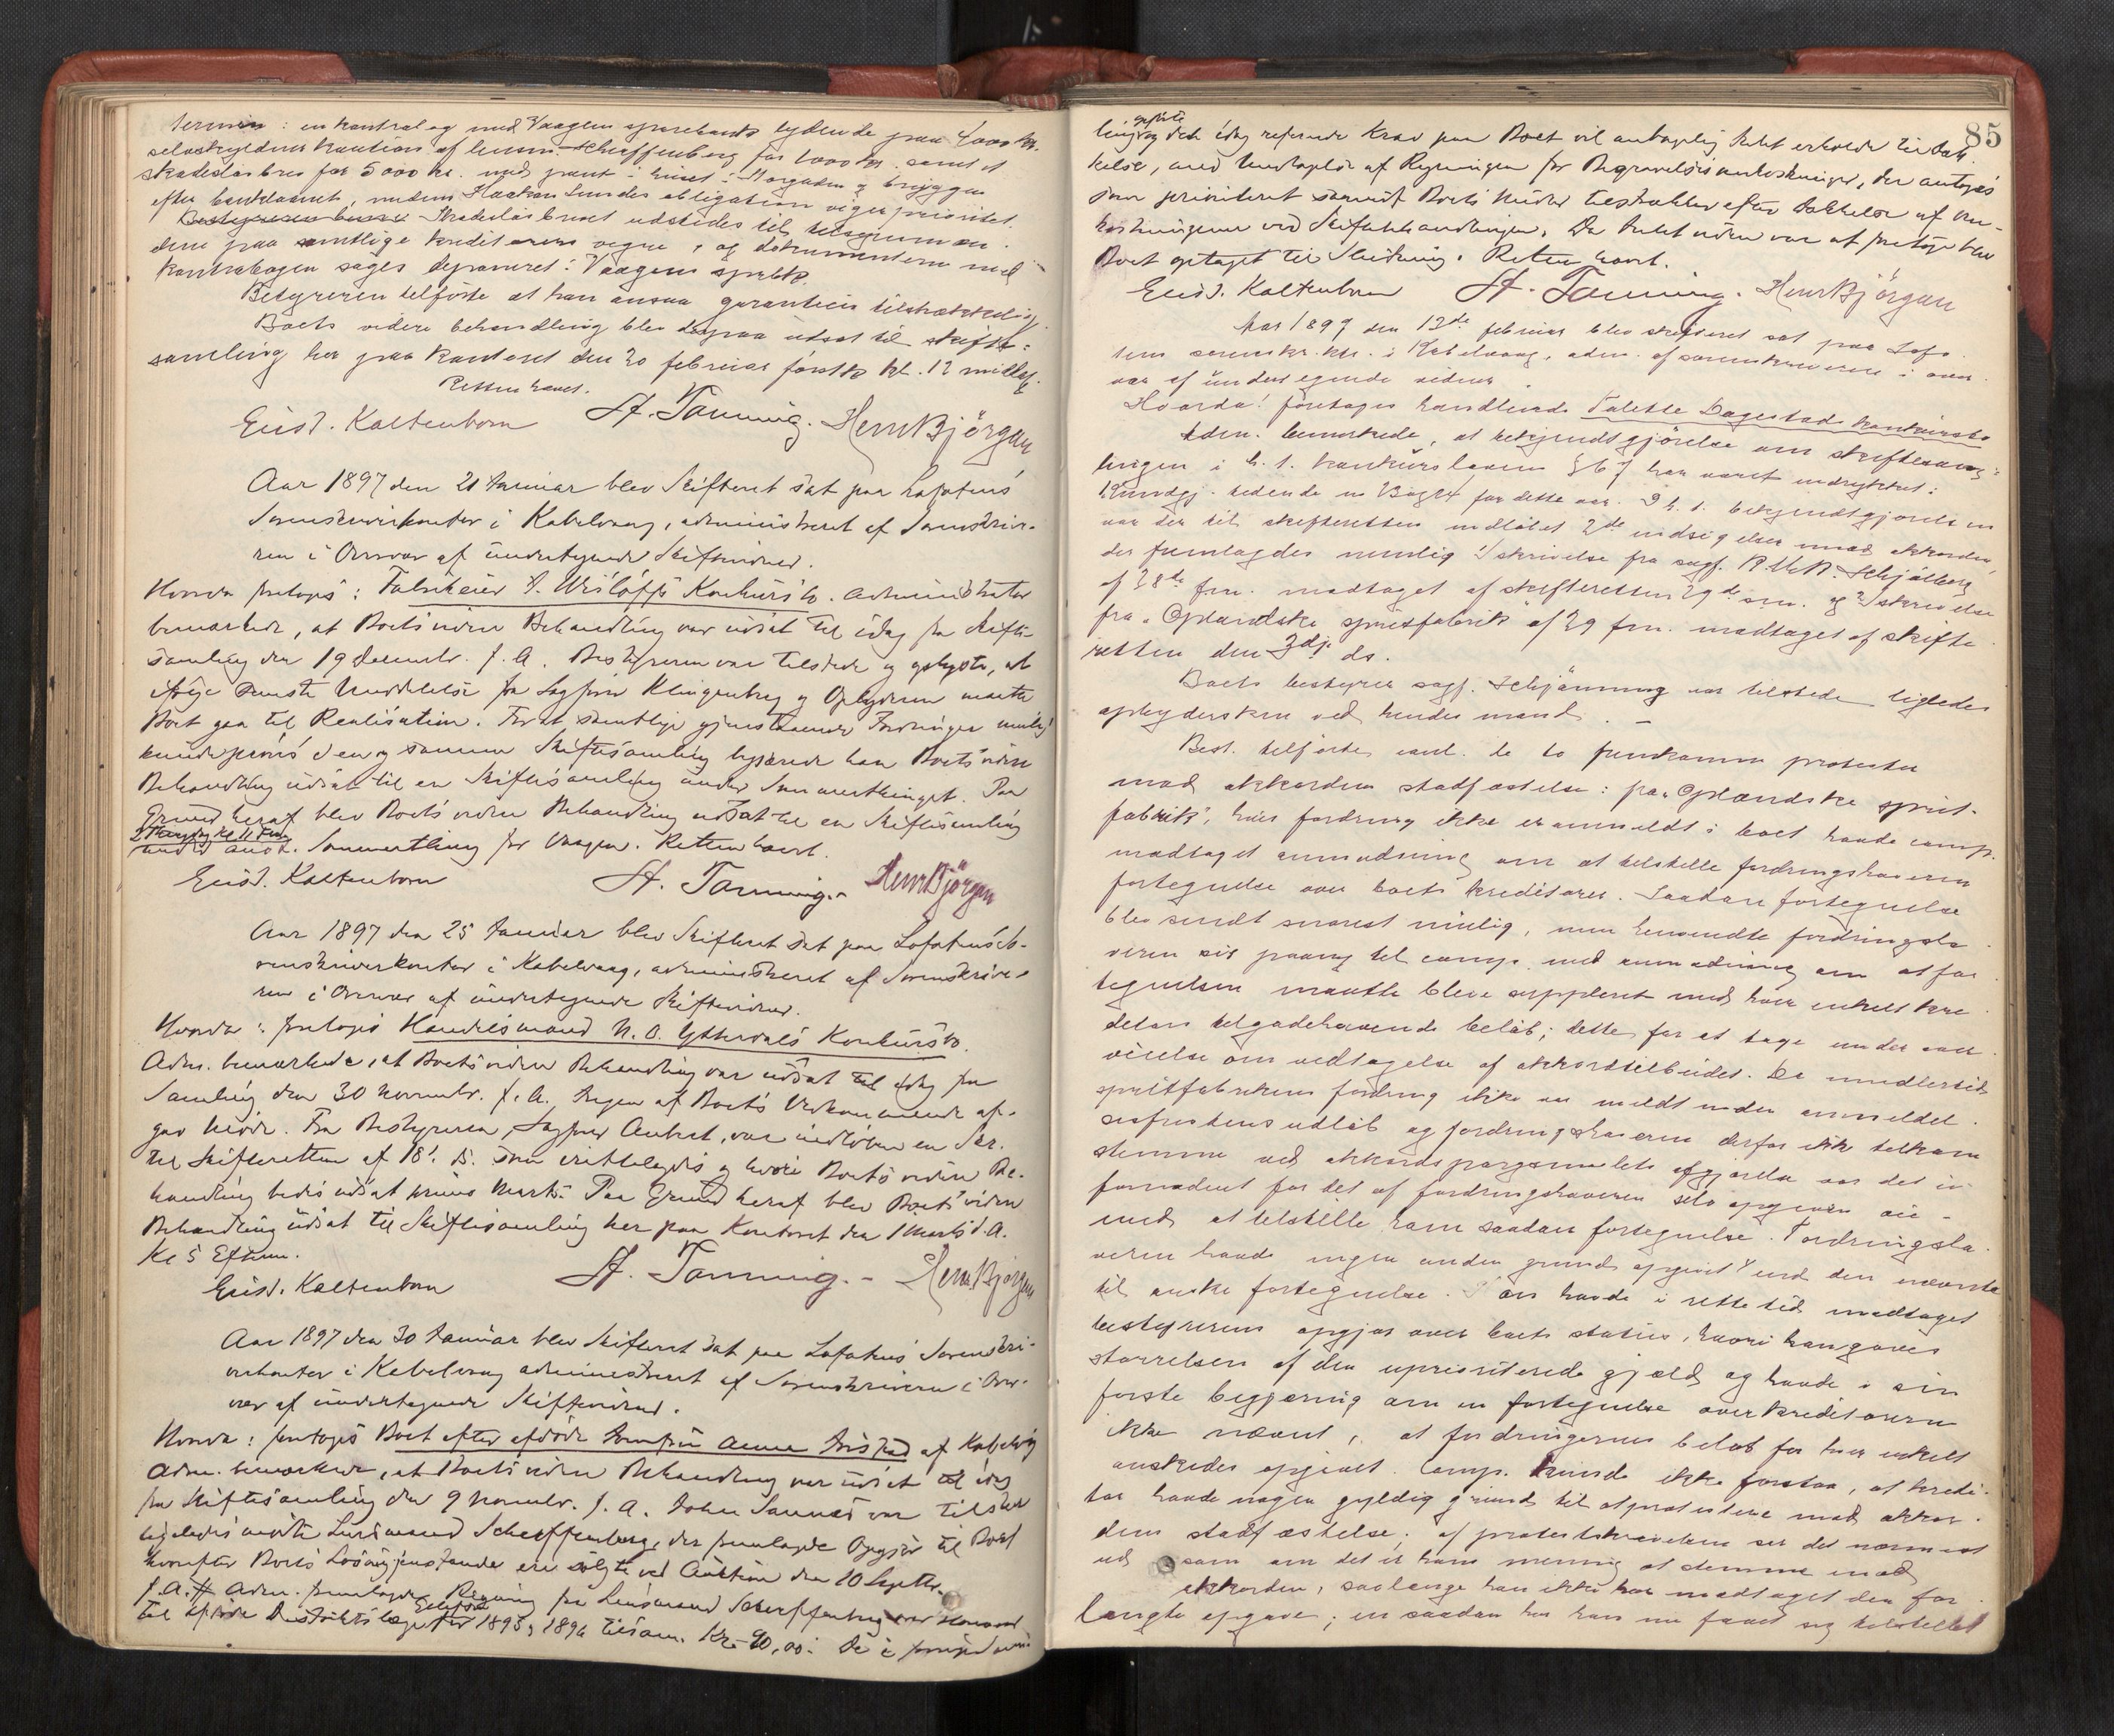 termin: en kontrabog med Vaagens sparebank lydende paa 4000 kr.
selvskyldner kaution af lensm. Scheffenberg for 1000 kr. samt et
skadeslösbrev for 5000 kr. med pant i huset i Storgaden & bryggen
efter bankelaanet, medens Haakon Lundes obligation viger prioritet.
Skadeslösbrevet udstedes til
dene paa samtlige kreditorers vegne, og dokumenterne med
kontrabogen söges deponeret i Vaagens sparebk.
Bestyreren tilförte at han ansaa garantien tilstrækkelig.
Boets videre behandling blev derpaa udsat til skifte-
samling her paa kontoret den 20 februar förstk. kl. 12 middag.
Retten hævet.
Eust. Kaltenborn A. Tanning. Henr Björgan
Aar 1897 den 21 Januar blev Skifteret sat paa Lofotens
Sorenskriverkontor i Kabelvaag, administreret af Sorenskrive-
ren i Overvær af undertegnede Skiftevidner.
Hvorda foretoges: Fabrikeier J. Wislöffs Konkursbo. Administrator
bemærkede, at Boets videre Behandling var udsat til idag fra Skifte-
samling den 19 Decembr. f. A. Bestyreren var tilstede og oplyste, at
ifölge seneste Meddelelse fra Sagförer Klingenberg og Opbyderen maatte
Boet gaa til Realisation. For at samtlige gjenstaaende Fordringer mulig
kunde pröves i en og samme Skiftesamling begjærede han Boets videre
Behandling udsat til en Skiftesamling under Sommerthinget. Paa
Grund heraf blev Boets videre Behandling udsat til en Skiftesamling
2 Thingdag Kl 11 Form
under Sommerthing for Vaagen. Retten hævet.
Eust. Kaltenborn A. Tanning. Henr Björgan
Aar 1897 den 25 Januar blev Skifteret sat paa Lofotens So-
renskriverkontor i Kabelvaag, administreret af Sorenskrive-
ren i Overvær af undertegnede Skiftevidner.
Hvorda: foretoges Handelsmand N. O. Ytterdals Konkursbo.
Adm. bemærkede, at Boets videre Behandling var udsat til idag fra
Samling den 30 Novembr. f. A. Ingen af Boets Vedkommende af-
gav Möde. Fra Bestyreren, Sagförer Aubert, var indlöben en Skr.
til Skifteretten af 18. ds. som irettelagdes og hvori Boets videre Be-
handling bedes udsat primo Marts. Paa Grund heraf blev Boets videre
Behandling udsat til Skiftesamling her paa Kontoret den 1 Marts d. A.
Kl 5 Efterm.
Eust. Kaltenborn A. Tanning. Henr Björgan
Aar 1897 den 30 Januar blev Skifteret sat paa Lofotens Sorenskri-
verkontor i Kabelvaag administreret af Sorenskriveren i Over-
vær af undertegnede Skiftevidner.
Hvorda: foretoges Boet efter afdöde Jomfru Anne af Kabelvaag
Adm. bemærkede, at Boets videre Behandling var udsat til idag
fra Skiftesamling den 9 Novembr. f. A. John Sannes var tilstede
ligeledes mödte Lensmand Scheffenberg, der fremlagde Opgjör til Boet
hvorefter Boets Lösöregjenstande ere solgte ved Auktion den 10 Septbr.
f. A. Adm. fremlagde Regning fra Lensmand Scheffenberg
til Distriktslæge for 1895 & 1896 tilsam. Kr. 90,00. De i
85
ling opförte og det idag refererede Krav paa Boet vil antagelig intet erholde til Dæk-
kelse, med Undtagelse af Regningen for Begravelsesomkostninger, der antages
som prioriteret saavidt Boets Midler tilstrækker efter Dækkelse af Om-
kostningerne ved Skiftebehandlingen. Da Intet videre var at foretage blev
Boet optaget til Slutning. Retten hævet.
Eust. Kaltenborn A. Tanning. Henr Björgan
Aar 1897 den 13de februar blev skifteret sat paa Lofo-
tens sorenskr. ktr. i Kabelvaag, adm. af sorenskriveren i over-
vær af undertegnede vidner.
Hvorda: foretoges handlende Valette Dagestads konkursbo
Adm. bemærkede, at bekjendtgjörelse om skiftesam-
lingen i h. t. konkurslovens § 67 har været indrykket i
Kundgj. tidende no 13 & 14 for dette aar. I h. t. bekjendtgjörelsen
var der til skifteretten indlöbet 2de indsigelser mod akkorden,
der fremlagdes nemlig 1/ skrivelse fra sagf. R. Schjölberg
af 28de frm. modtaget af skifteretten 29de sm. og 2/ skrivelse
fra "Oplandske spritfabrik" af 29 frm. modtaget af skifte-
retten den 3die ds.
Boets bestyrer sagf. Schjänning var tilstede ligeledes
opbydersken ved hendes mand. —
Best. tilförte anl. de to fremkomne protester
mod akkordens stadfæstelse: fra "Oplandske sprit-
fabrik", hvis fordring ikke er anmeldt i boet havde comp.
modtaget anmodning om at tilstille fordringshaveren
fortegnelse over boets kreditorer. Saadan fortegnelse
blev sendt snarest mulig, men henvendte fordringsha-
veren sig paany til comp. med anmodning om at for-
tegnelsen maatte blive suppleret med hver enkelt kre-
ditors tilgodehavende belöb; dette for at tage under over-
veielse om vedtagelse af akkordtilbudet. Da imidlertid
spritfabrikens fordring ikke var meldt inden anmeldel-
sesfristens udlöb og fordringshaveren derfor ikke tilkom
stemme ved akkordspörgsmaalets afgjörelse var det
fornödent for det af fordringshaveren selv opgivne öie-
med at tilstille ham saadan fortegnelse. Fordringsha-
veren havde ingen anden grund opgivet end den nævnte
til önske fortegnelse. Han havde i rette tid modtaget
bestyrerens opgjör over boets status, hvori han gaves
störrelsen af den uprioriterede gjæld og havde i sin
förste begjæring om en fortegnelse over kreditorerne
ikke nævnt, at fordringernes belöb for hver enkelt
önskedes opgivet. Comp. kunde ikke forstaa, at kredi-
tor havde nogen gyldig grund til at protestere mod akkor-
dens stadfæstelse; af protestskrivelsen ser det nærmest
ud som om det er hans mening at stemme mod
akkorden, saalænge han ikke har modtaget den for-
langte opgave; en saadan har han nu faaet sig tilstillet